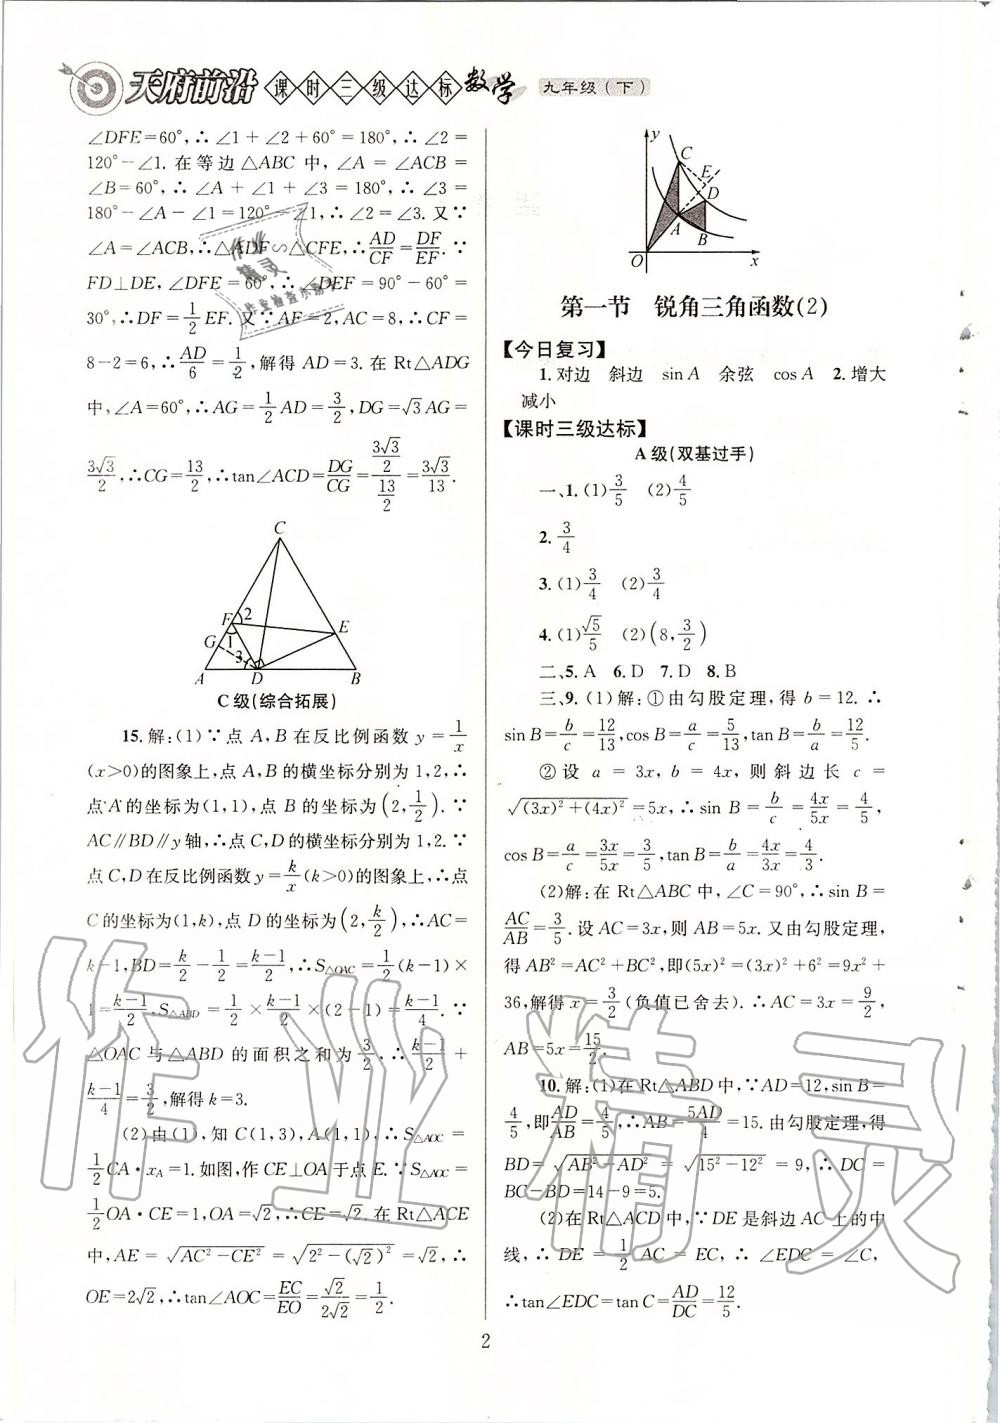 天府前沿 课时三级达标 数学 九年级(下)
∠DFE=60°,∴∠1+∠2+60°=180°,∴∠2=
120°-∠1.在等边△ABC中,∠A=∠ACB=
∠B=60°,∴∠A+∠1+∠3=180°,∴∠3=
180°-∠A-∠1=120°-∠1,∴∠2=∠3.又∵
∠A=∠ACB,∴△ADF∽△CFE,∴AD/CF=DF/EF.∵
FD⊥DE,∠DFE=60°,∴∠DEF=90°-60°=
30°,∴DF=1/2EF.又∵AF=2,AC=8,∴CF=
8-2=6,∴AD/6=1/2,解得AD=3.在Rt△ADG
中,∠A=60°,∴AG=1/2AD=3/2,DG=√3AG=
3√3/2,∴CG=13/2,∴tan∠ACD=DG/CG=(3√3/2)/(13/2)=3√3/13.
C
F 2
G 1 E
3
A D B
C级(综合拓展)
15.解:(1)∵点A,B在反比例函数y=1/x
(x>0)的图象上,点A,B的横坐标分别为1,2,∴
点A的坐标为(1,1),点B的坐标为(2,1/2).∵
AC∥BD∥y轴,∴点C,D的横坐标分别为1,2.∵
点C,D在反比例函数y=k/x(k>0)的图象上,∴点
C的坐标为(1,k),点D的坐标为(2,k/2),∴AC=
k-1,BD=k/2-1/2=(k-1)/2,∴S△OAC=1/2(k-1)×
1=(k-1)/2,S△ABD=1/2×(k-1)/2×(2-1)=(k-1)/4.∵
△OAC与△ABD的面积之和为3/2,∴(k-1)/2+
(k-1)/4=3/2,解得k=3.
(2)由(1),知C(1,3),A(1,1),∴S△AOC=
1/2CA·xA=1.如图,作CE⊥OA于点E.∵S△AOC=
1/2OA·CE=1,OA=√2,∴CE=√2.在Rt△ACE
中,AE=√(AC²-CE²)=√(2²-(√2)²)=√2,∴
OE=2√2,∴tan∠AOC=EC/EO=√2/(2√2)=1/2.
y
C
E
D
A
B
O x
第一节 锐角三角函数(2)
【今日复习】
1.对边 斜边 sinA 余弦 cosA 2.增大
减小
【课时三级达标】
A级(双基过手)
一、1.(1)3/5 (2)4/5
2.3/4
3.(1)3/4 (2)3/4
4.(1)√5/5 (2)(8,3/2)
二、5.A 6.D 7.D 8.B
三、9.(1)解:①由勾股定理,得b=12.∴
sinB=b/c=12/13,cosB=a/c=5/13,tanB=b/a=12/5.
②设a=3x,b=4x,则斜边长c=
√((3x)²+(4x)²)=5x,∴sinB=b/c=4x/5x=4/5,
cosB=a/c=3x/5x=3/5,tanB=b/a=4x/3x=4/3.
(2)解:在Rt△ABC中,∠C=90°,∴sinB=
AC/AB=3/5.设AC=3x,则AB=5x.又由勾股定理,
得AB²=AC²+BC²,即(5x)²=(3x)²+6²=9x²+
36,解得x=3/2(负值已舍去).∴AC=3x=9/2,
AB=5x=15/2.
10.解:(1)在Rt△ABD中,∵AD=12,sinB=
4/5,即AD/AB=4/5,∴AB=5AD/4=15.由勾股定理,得
BD=√(AB²-AD²)=√(15²-12²)=9,∴DC=
BC-BD=14-9=5.
(2)在Rt△ACD中,∵DE是斜边AC上的中
线,∴DE=1/2AC=EC,∴∠EDC=∠C,
∴tan∠EDC=tanC=AD/DC=12/5.
2
作业精灵